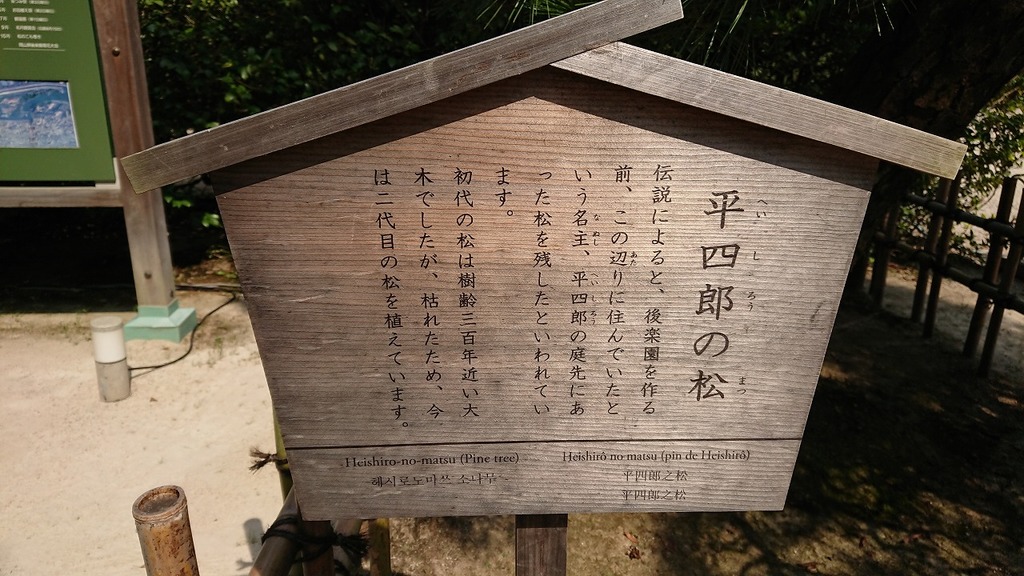 平四郎の松
へいしろう
まつ
伝説によると、後楽園を作る
前、この辺りに住んでいたと
あた
いう名主、平四郎の庭先にあ
なぬし
へいしろう
った松を残したといわれてい
ます。
初代の松は樹齢三百年近い大
木でしたが、枯れたため、今
は二代目の松を植えています。
Heishiro-no-matsu (Pine tree)
헤시로노마쓰 소나무
Heishirô no matsu (pin de Heishirô)
平四郎之松
平四郎之松